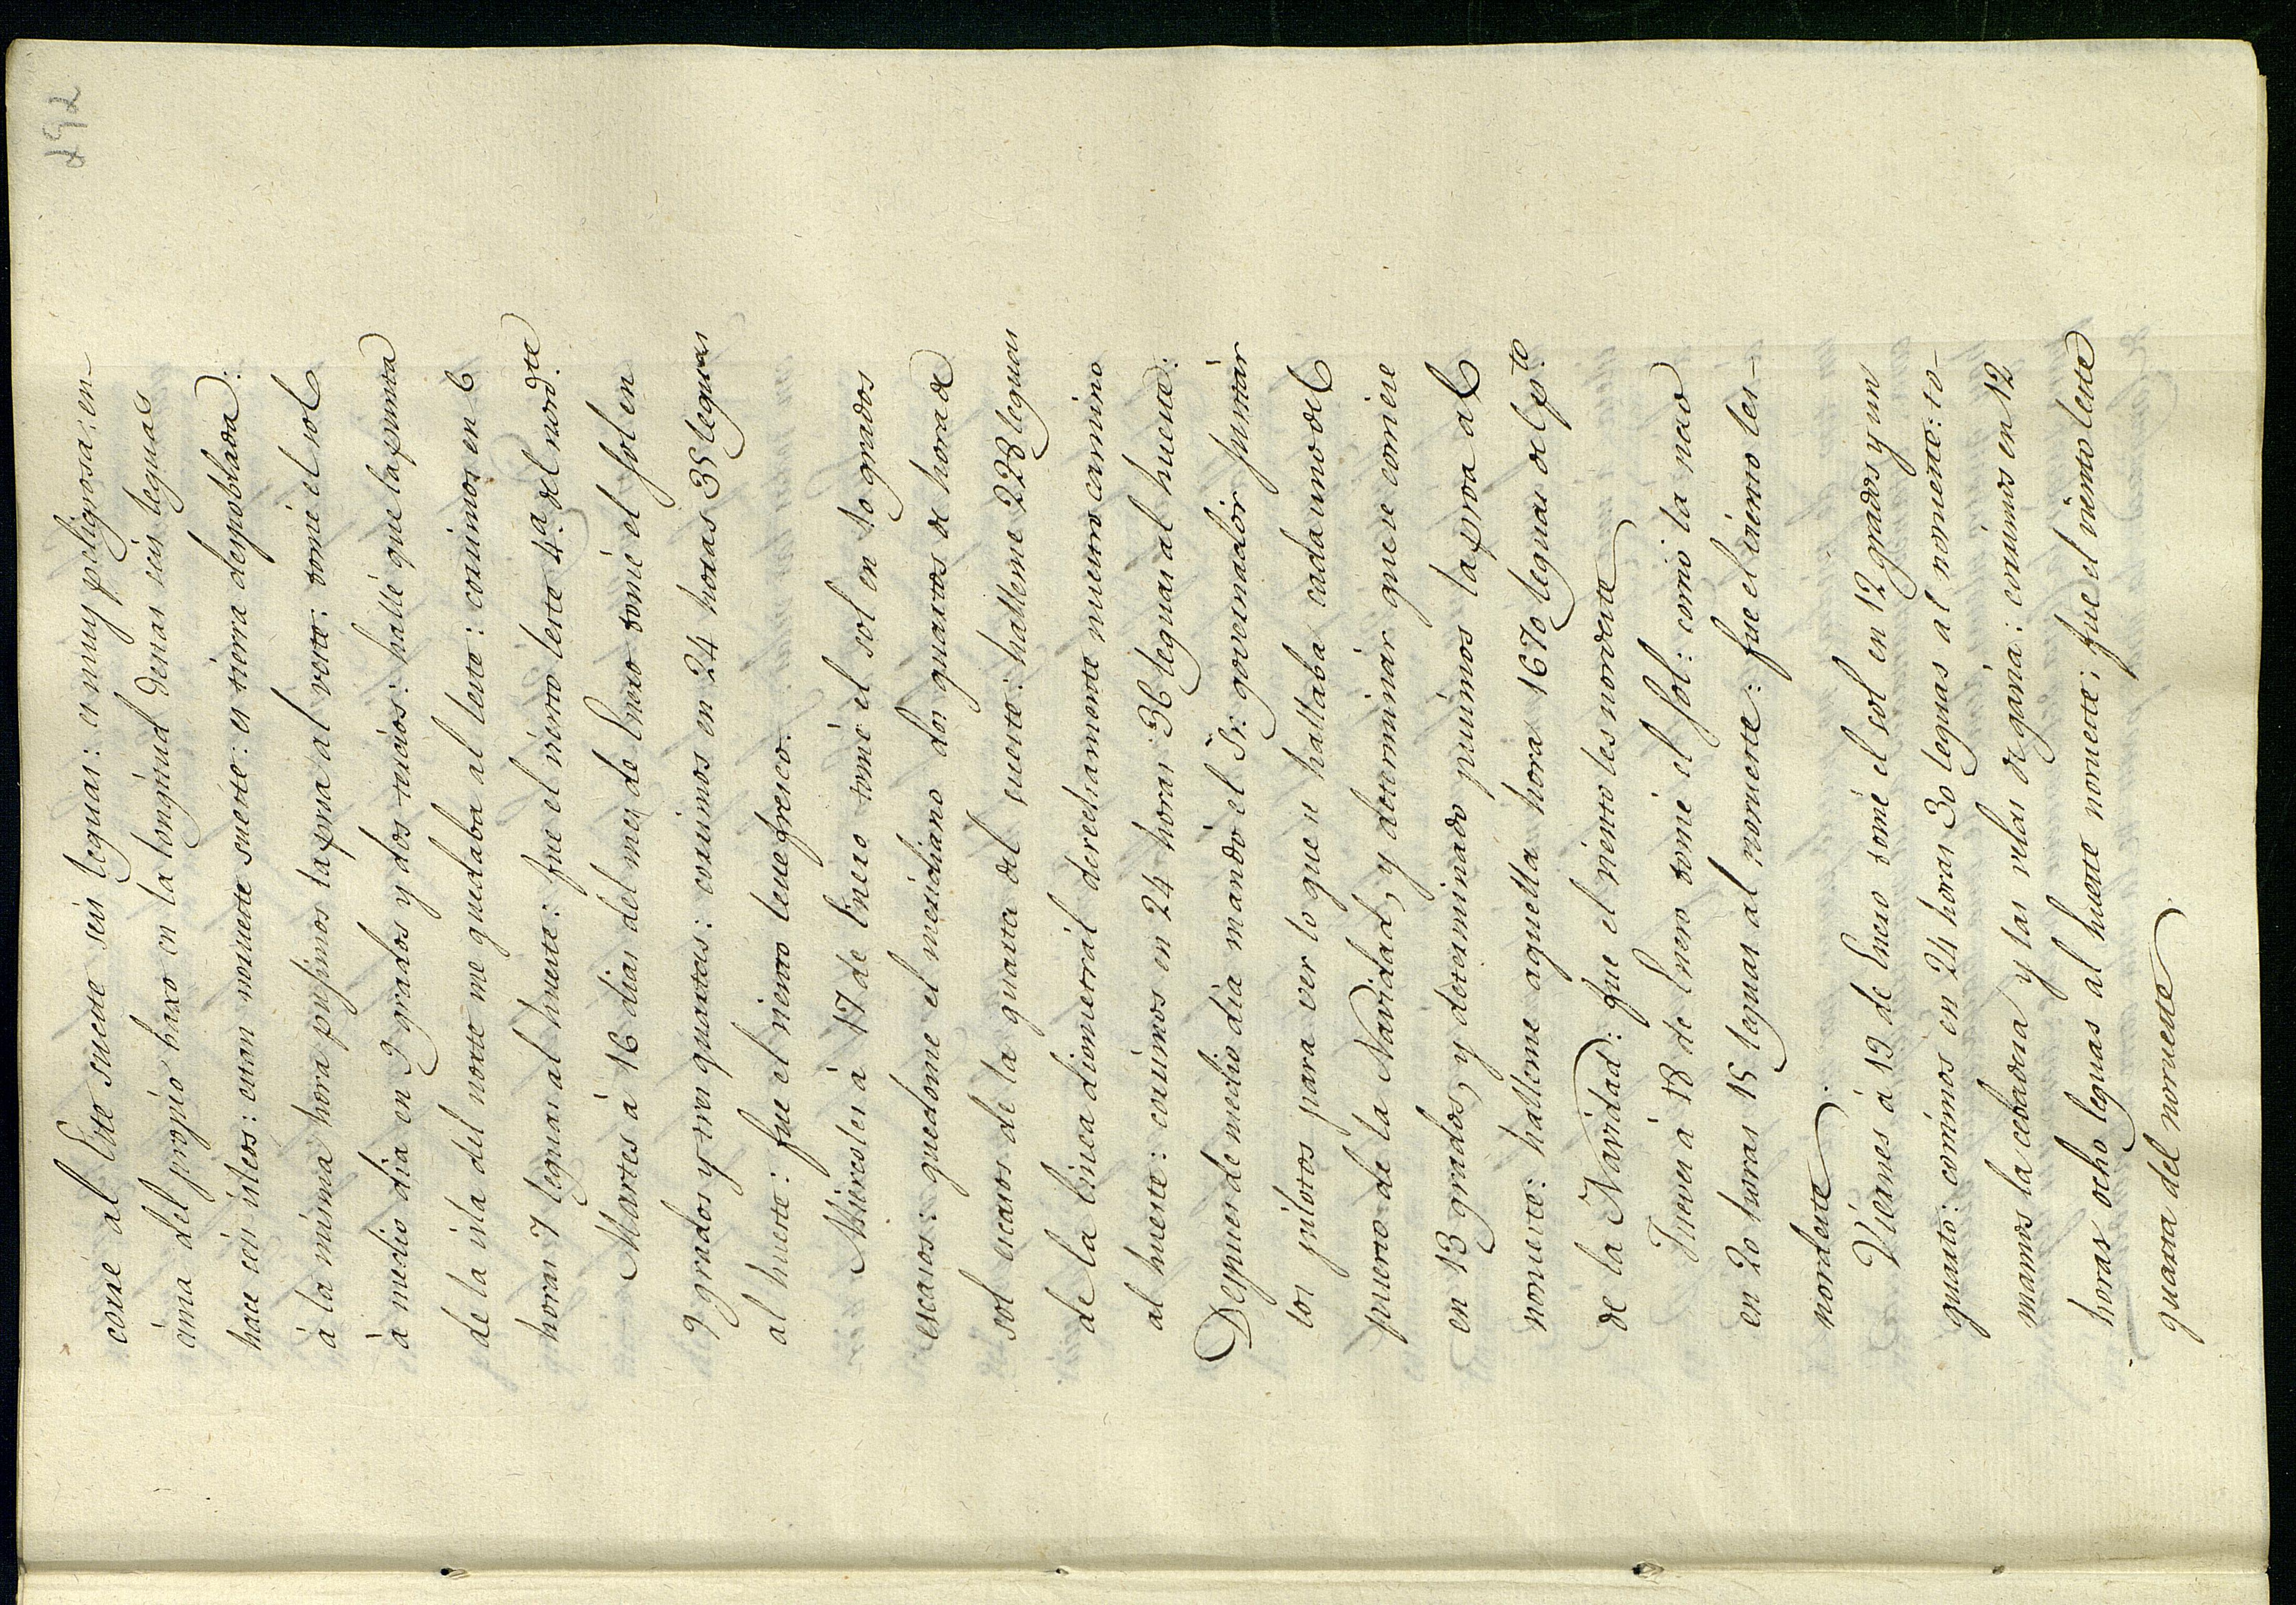 192
corre al Este sueste seis leguas: es muy peligrosa: en-
cima del propio baxo en la longitud destas seis leguas
hace seis isleos: estan norueste sueste: es tierra despoblada:
à la misma hora pusimos la proa al veste: tomé el sol
à medio dia en 9 grados y dos tercios: hallé que la punta
de la isla del norte me quedaba al leste: corrimos en 6
horas 7 leguas al hueste: fue el viento leste 4.ª del nord.ste
Martes à 16 dias del mes de Enero tomé el sol en
9 grados y tres quartos: corrimos en 24 horas 35 leguas
al hueste: fue el viento leste fresco.
Miercoles à 17 de Enero tomé el sol en 10 grados
escasos: quedome el meridiano dos quartos de hora de
sol escasos de la quarta del sueste: halleme 228 leguas
de la linea diametral derechamente nuestro camino
al hueste: corrimos en 24 horas 36 leguas al hueste:
Despues de medio dia mandó el Sr. governador juntar
los pilotos para ver lo que se hallaba cada uno del
puerto de la Navidad, y determinar que se corriese
en 13 grados, y determinado pusimos la proa al
norueste: halleme aquella hora 1670 leguas del p.to
de la Navidad: fue el viento les nordeste
Jueves à 18 de Enero tomé el sol: corrió la nao
en 20 horas 15 leguas al norueste: fue el viento les-
nordeste.
Viernes à 19 de Enero tomé el sol en 12 grados y un
quarto: corrimos en 24 horas 30 leguas al norueste: to-
mamos la cebadera y las velas de gavia: corrimos en 12
horas ocho leguas al hueste norueste: fue el viento leste
quarta del norueste